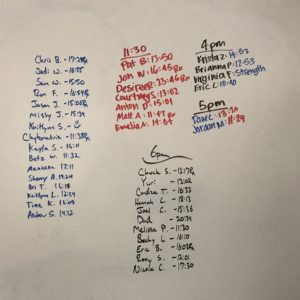 Chris B. - 13:28Rx
Jodi W. - 16:55
Sam W. - 15:50
Ron F. - 16:49Rx
Jason J. - 15:08Rx
Misty J. - 15:34
Kaitlynn S. -
- 11:38Rx
Kayla S. - 16:11
Betz W. 11:32
12:11
Sherry A. 13:24
Bri T. 16:18
Kaitlyn L. 12:54
Tina K. 12:09
Andru S. 14:32
11:30
Pat B: 13:50
Jon W: 16:45Rx
Desiree R: 23:46Rx
Courtney S: 13:02
Anton D: 15:01
Matt A: 11:47Rx
Emelia A: 14:04
4pm
Krista Z: 14:57
Brianna P: 12:53
Virginia F: Strength
Eric L: 10:40
5pm
Dave C:
Jordan M: 11:29
6pm
Chuck S. - 12:17Rx
Yuri - 13:02
Candra T. - 16:33
Hannah C. - 18:13
Joel C. - 15:36
Dad - 20:34
Melissa P. - 11:30
Becky L - 16:10
Eric B. - 16:03Rx
Rory S. - 12:01
Nicole C. - 17:30